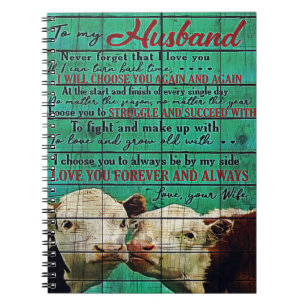 To my Husband
Never forget that I love you
If I can turn back time,
I WILL CHOOSE YOU AGAIN AND AGAIN
At the start and finish of every single day
No matter the season, no matter the year
Choose you to STRUGGLE AND SUCCEED WITH
To fight and make up with
To love and grow old with
I choose you to always be by my side
LOVE YOU FOREVER AND ALWAYS
Love, your Wife